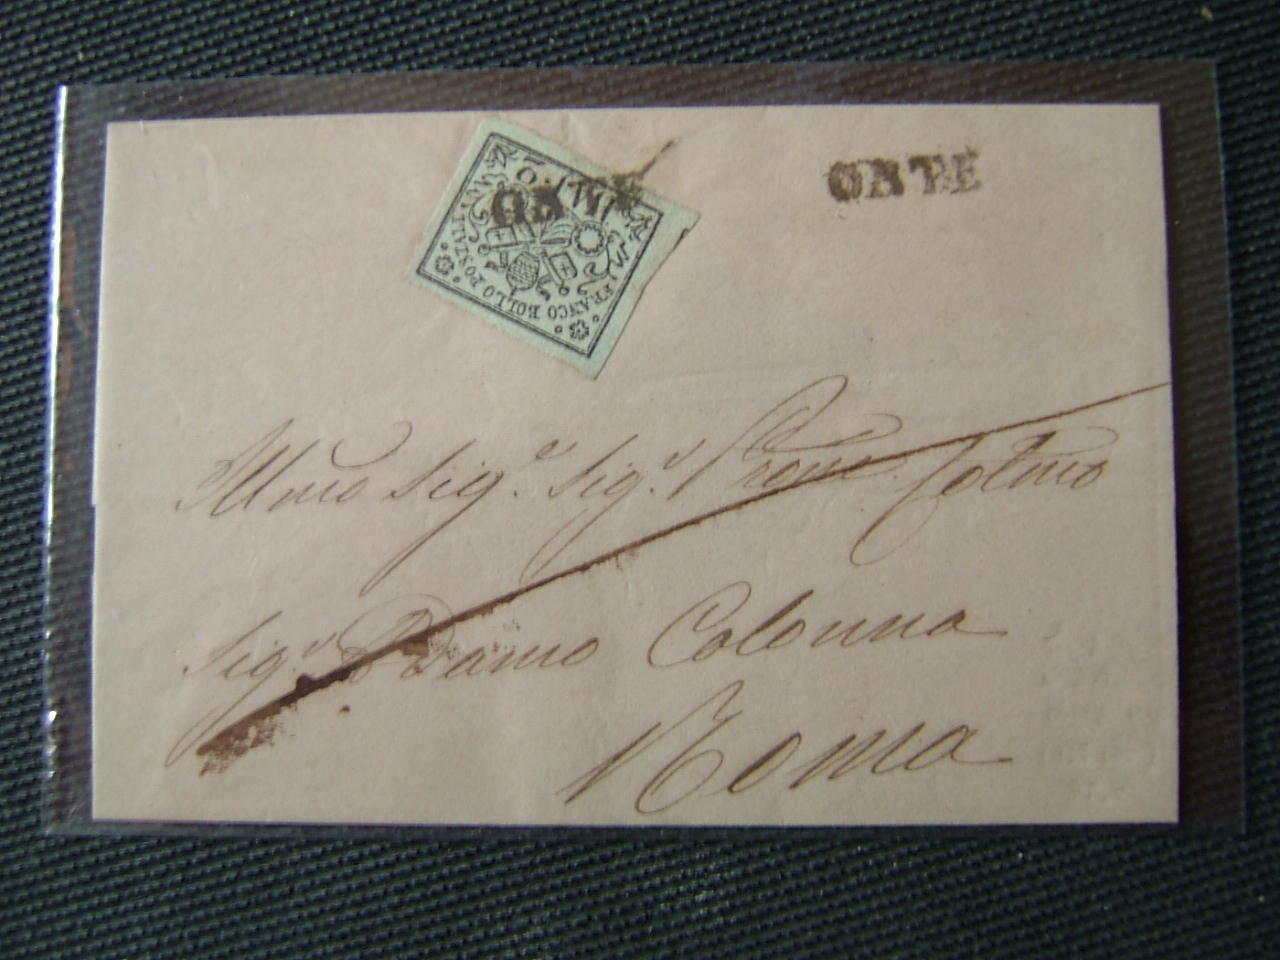 ORTE
ORTE
BAJ. 2
FRANCO BOLLO POSTALE
Illmo Sig.e Sig.e Prone Colmo
Sig.e Damo Colonna
Roma